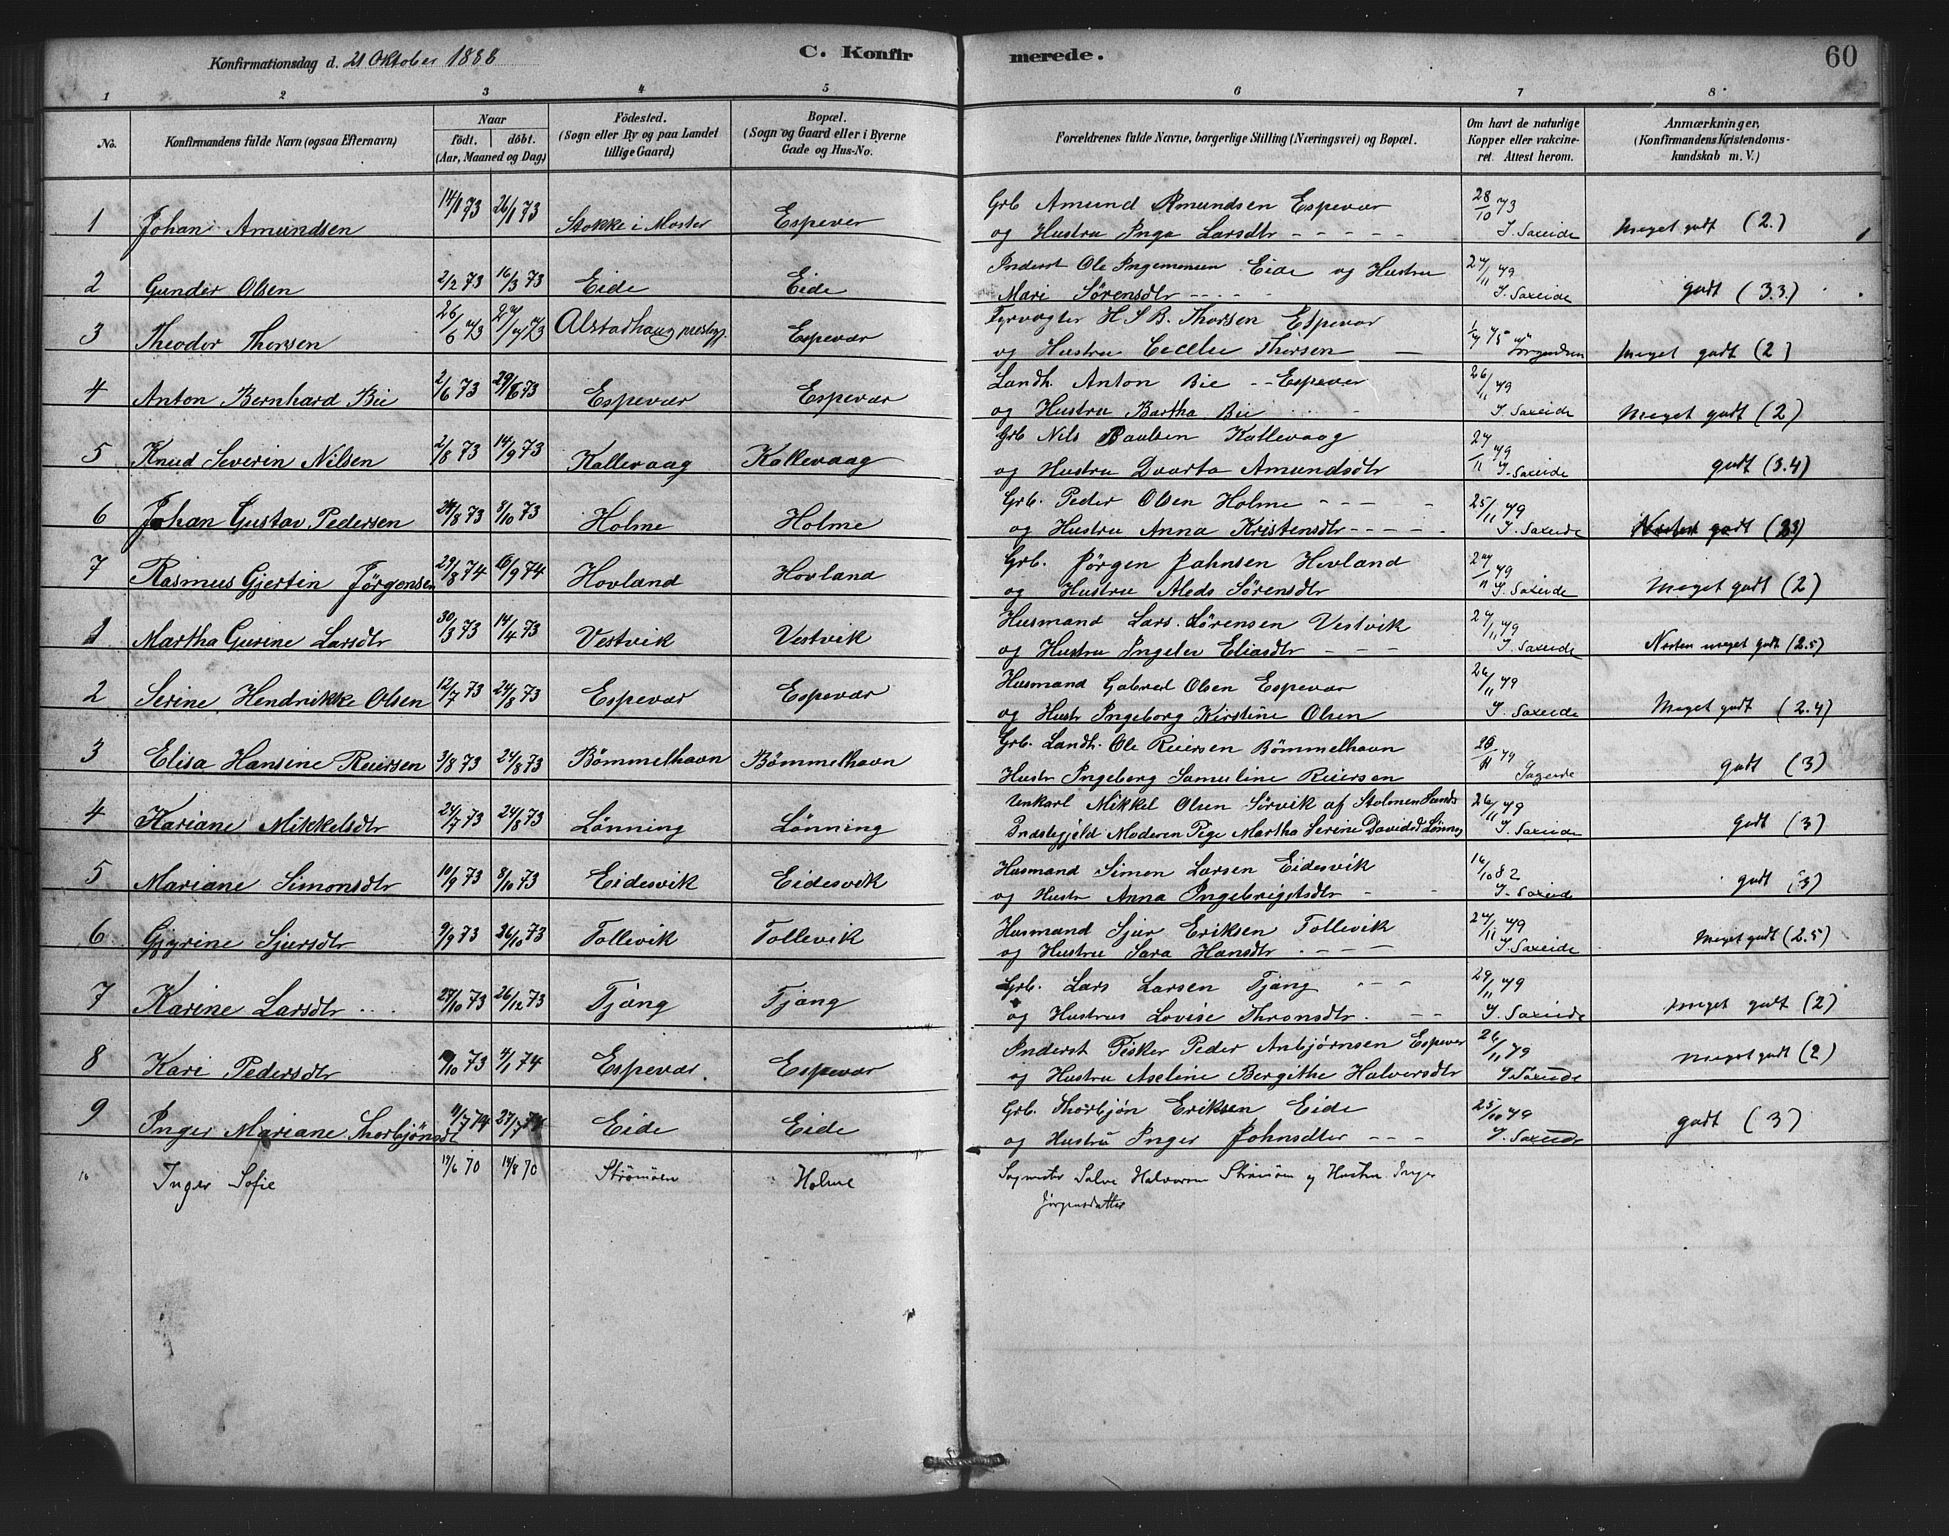 Konfirmationsdag d. 21 Oktober 1888 C. Konfirmerede. 60
1 2 3 4 5 6 7 8
No. Konfirmandens fulde Navn (ogsaa Efternavn) Naar födt. döbt. (Aar, Maaned og Dag) Födested. (Sogn eller By og paa Landet tillige Gaard) Bopæl. (Sogn og Gaard eller i Byerne Gade og Hus-No. Forældrenes fulde Navne, borgerlige Stilling (Næringsvei) og Bopæl. Om havt de naturlige Kopper eller vakcineret. Attest herom. Anmærkninger, (Konfirmandens Kristendomskundskab m. V.)
1 Johan Amundsen 14/1 73 26/1 73 Stokke i Moster Espevær Grb Amund Amundsen Espevær 28/10 73
og Hustru Inga Larsdtr - - - - - J. Saxeide Meget godt (2.)
2 Gunder Olsen 2/2 73 16/3 73 Eide Eide Inderst Ole Ingemonsen Eide og Hustru 27/11 79
Mari Sörensdtr - - - - J. Saxeide godt (3.3.)
3 Theodor Thorsen 26/6 73 27/7 73 Alstadhaug prestegj. Espevær Fyrvogter H S B. Thorsen Espevær
og Hustru Cecilie Thorsen - Jörgensen Meget godt (2)
4 Anton Bernhard Bie 2/6 73 29/6 73 Espevær Espevær Landh. Anton Bie - - Espevær 26/11 79
og Hustru Bartha Bie J. Saxeide Meget godt (2)
5 Knud Severin Nilsen 2/8 73 14/9 73 Kallevaag Kallevaag Grb Nils Paulsen Kallevaag 27/11 79
og Hustru Dorta Amundsdtr J. Saxeide godt (3.4)
6 Johan Gustav Pedersen 8/10 73 Holme Holme Grb. Peder Olsen Holme - - - 25/11 79
og Hustru Anna Kristensdtr - - - - J. Saxeide godt
7 Rasmus Gjertin Jörgensen 23/8 74 Hovland Hovland Grb. Jörgen Johnsen Hovland 27/11 79
og Hustru Aleds Sörensdtr J. Saxeide Meget godt (2)
1 Martha Gurine Larsdtr 30/3 73 14/4 73 Vestvik Vestvik Husmand Lars Sörensen Vestvik 27/11 79
og Hustru Ingelev Eliasdtr - - - J. Saxeide Næsten meget godt (2.5)
2 Serine Hendrikke Olsen 12/7 73 24/8 73 Espevær Espevær Husmand Gabriel Olsen Espevær 26/11 79
og Hustr Ingeborg Kirstine Olsen J. Saxeide Meget godt (2.4)
3 Elisa Hansine Reiersen 3/8 73 24/8 73 Bömmelhavn Bömmelhavn Grb. Landh. Ole Reiersen Bömmelhavn
Hustr Ingeborg Samuline Reiersen Saxeide godt (3)
4 Kariane Mikkelsdtr 24/7 73 24/8 73 Lönning Lönning Unkarl Mikkel Olsen Sörvik af Stolmen Sunds 26/11 79
Præstegjeld Moderen Pige Martha Serine Davidsd Lönning J. Saxeide godt (3)
5 Mariane Simonsdtr 10/9 73 8/10 73 Eidesvik Eidesvik Husmand Simon Larsen Eidesvik 16/10 82
og Hustr Anna Ingebrigtsdtr - J. Saxeide godt (3)
6 Gjyrine Sjursdtr 9/9 73 26/10 73 Tollevik Tollevik Husmand Sjur Eriksen Tollevik 27/11 79
og Hustru Sara Hansdtr - - - - J. Saxeide Meget godt (2.5)
7 Karine Larsdtr 27/10 73 26/12 73 Tjong Tjong Grb. Lars Larsen Tjong - - - 29/11 79
og Hustrus Lovise Thronsdtr. - - J. Saxeide Meget godt (2)
8 Kari Pedersdtr 73 4/1 74 Espevær Espevær Inderst Fisker Peder Anbjörnsen Espevær 26/11 79
og Hustru Aseline Bergithe Halversdtr J. Saxeide Meget godt (2)
9 Inger Mariane Thorbjönsdt 11/7 74 27/7 74 Eide Eide Grb. Thorbjön Eriksen Eide 25/10 79
og Hustru Inger Johnsdter - - - J. Saxeide godt (3)
10 Inger Sofie 17/6 70 14/8 70 Strömöen Holme Sagmester Salve Halvorsen Strömöen og Hustru Inger
Jörgensdatter